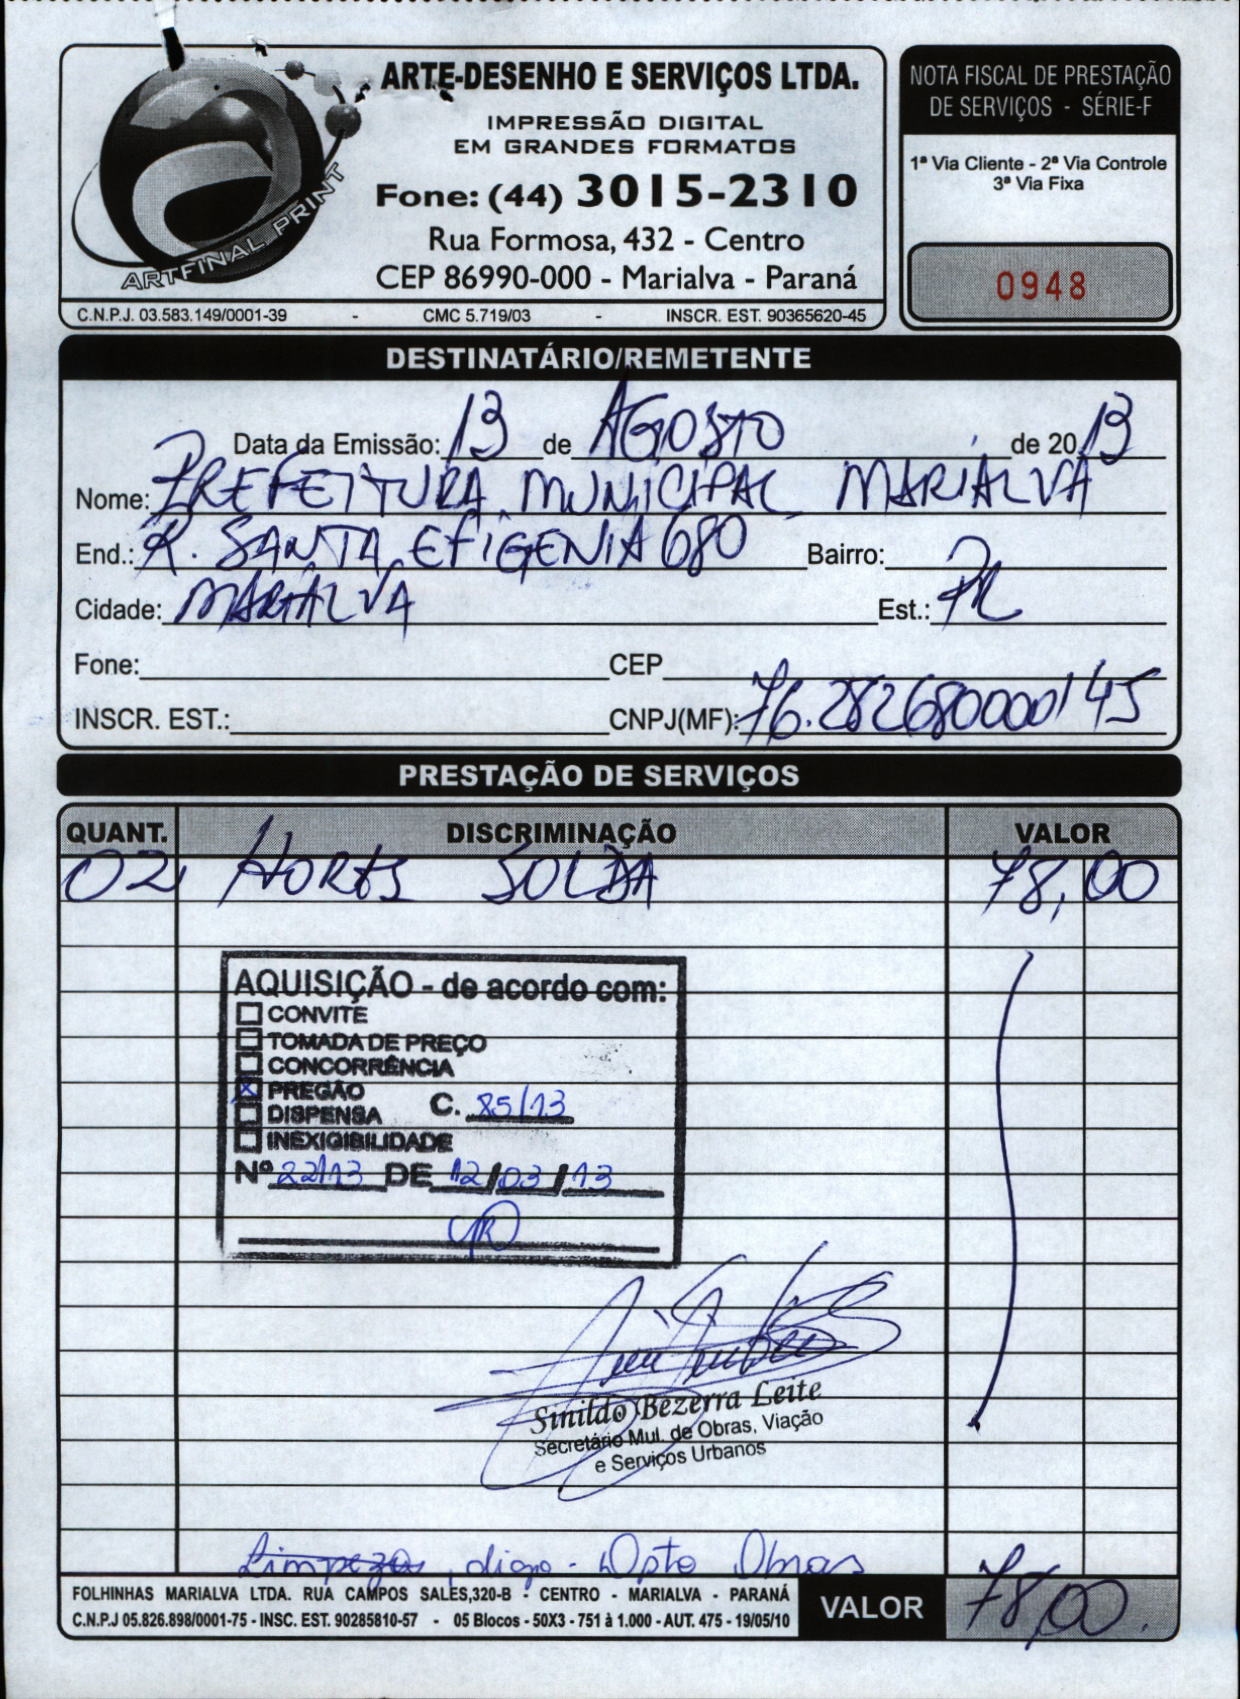 ARTFINAL PRINT
ARTE-DESENHO E SERVIÇOS LTDA.
IMPRESSÃO DIGITAL
EM GRANDES FORMATOS
Fone: (44) 3015-2310
Rua Formosa, 432 - Centro
CEP 86990-000 - Marialva - Paraná
C.N.P.J. 03.583.149/0001-39 - CMC 5.719/03 - INSCR. EST. 90365620-45
NOTA FISCAL DE PRESTAÇÃO
DE SERVIÇOS - SÉRIE-F
1ª Via Cliente - 2ª Via Controle
3ª Via Fixa
0948
DESTINATÁRIO/REMETENTE
Data da Emissão: 13 de AGOSTO de 2013
Nome: PREFEITURA MUNICIPAL MARIALVA
End.: R. SANTA EFIGENIA 680 Bairro:
Cidade: MARIALVA Est.: PR
Fone: CEP
INSCR. EST.: CNPJ(MF): 76.282680000145
PRESTAÇÃO DE SERVIÇOS
QUANT. DISCRIMINAÇÃO VALOR
02 HORAS SOLDA 78,00
AQUISIÇÃO - de acordo com:
CONVITE
TOMADA DE PREÇO
CONCORRÊNCIA
X PREGÃO
DISPENSA C. 85/13
INEXIGIBILIDADE
Nº 22/13 DE 12/03/13
Sinildo Bezerra Leite
Secretário Mul. de Obras, Viação
e Serviços Urbanos
Limpeza, digo - Dpto Obras
FOLHINHAS MARIALVA LTDA. RUA CAMPOS SALES,320-B - CENTRO - MARIALVA - PARANÁ
C.N.P.J 05.826.898/0001-75 - INSC. EST. 90285810-57 - 05 Blocos - 50X3 - 751 à 1.000 - AUT. 475 - 19/05/10
VALOR 78,00